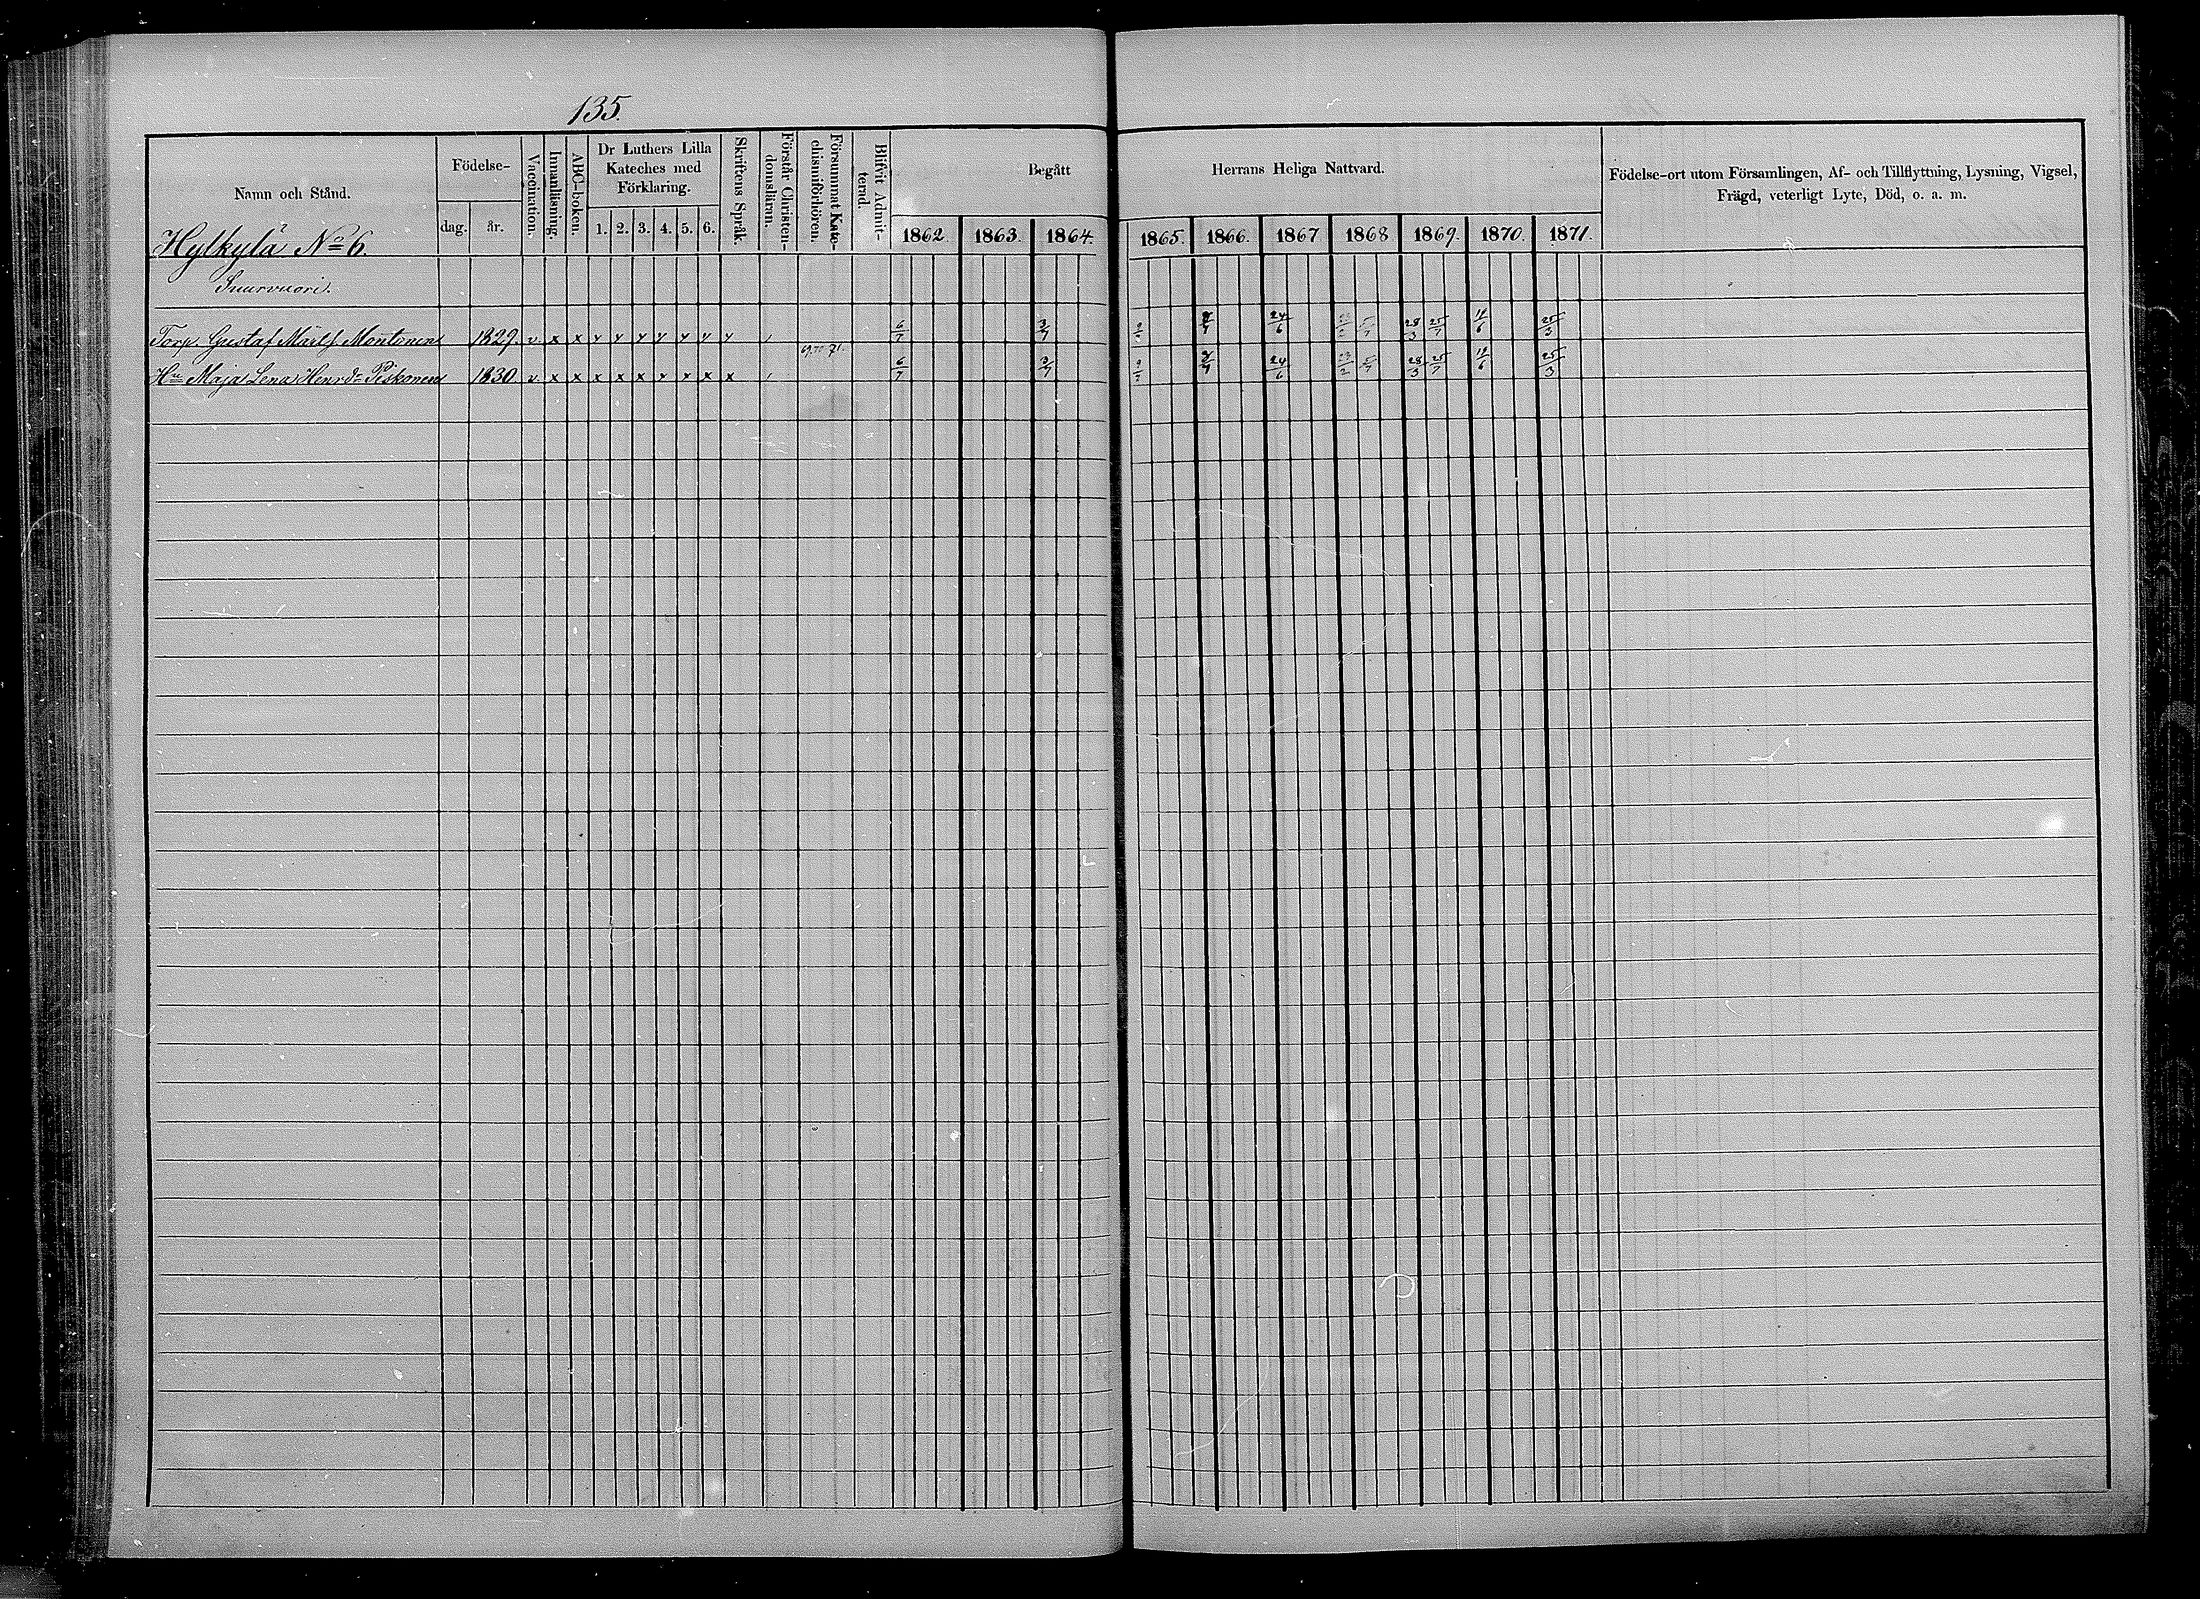 135.
Namn och Stånd.
Födelse-
dag. år.
Vaccination.
Innanläsning.
ABC-boken.
Dr Luthers Lilla
Kateches med
Förklaring.
1. 2. 3. 4. 5. 6.
Skriftens Språk.
Förstår Christen-
domsläran.
Försummat Kate-
chismiförhören.
Blifvit Admit-
terad.
Begått Herrans Heliga Nattvard.
1862. 1863. 1864. 1865. 1866. 1867 1868 1869. 1870. 1871.
Födelse-ort utom Församlingen, Af- och Tillflyttning, Lysning, Vigsel,
Frägd, veterligt Lyte, Död, o. a. m.
Hylkylä No 6.
Suurvuori.
Torp. Gustaf Matts. Montonen 1829. v x x y y y y y y y 6/7 3/7 24/6 28/3 25/7 25/3
69. 70 71.
Hu Maja Lena Henrd. Piskonen 1830 v x x x x x x x x x 6/7 3/7 24/6 23/2 28/3 25/7 25/3